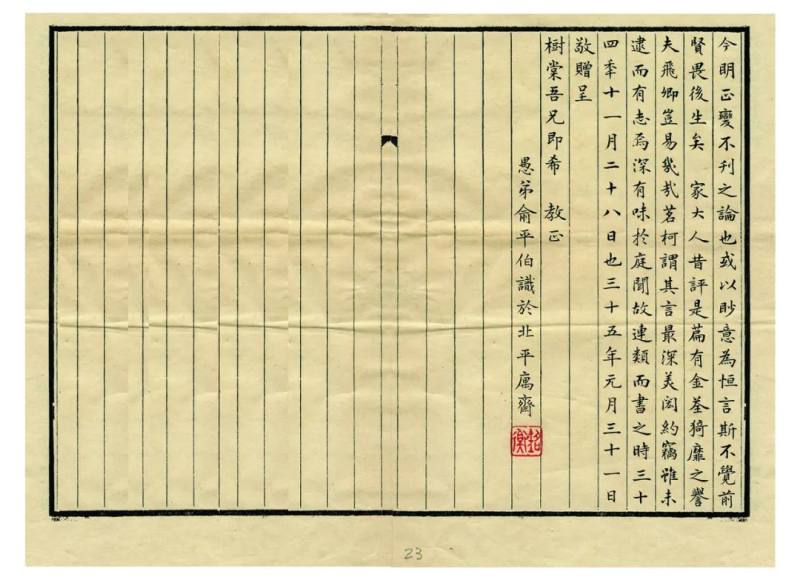 今明正變不刊之論也或以眇意為恒言斯不覺前
賢畏後生矣　家大人昔評是篇有金荃猗靡之譽
夫飛卿豈易幾哉茗柯謂其言最深美閎約竊雖未
逮而有志焉深有味於庭聞故連類而書之時三十
四秊十一月二十八日也三十五年元月三十一日
敬贈呈
樹棠吾兄即希　教正
愚弟俞平伯識於北平庽齋
銘衡
23